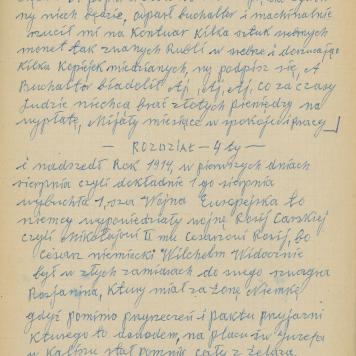 ny niech będzie, odparł buchalter i machinalnie
rzucił mi na kontuar kilka sztuk srebrnych
monet tak zwanych Rubli w srebrze i
kilka kopiejek miedzianych, no podpisz się, A
Buchalter biadolił Aj, Aj, Aj, co za czasy
ludzie niechcą brać złotych pieniędzy na
wypłatę, Mijały miesiące w spokoju i pracy
— ROZDZIAŁ — 4 ty —
i nadszedł Rok 1914, w pierwszych dniach
sierpnia czyli dokładnie 1 go sierpnia
wybuchła 1,sza Wojna Europejska to
niemcy wypowiedziały wojnę Rosji Carskiej
czyli Mikołajowi II mu Cesarzowi Rosji, bo
Cesarz niemiecki Wilchelm Widocznie
był w złych zamiarach do swego szwagra
Rosjanina, Ktury miał za żonę Niemkę
gdyż pomimo przyrzeczeń i paktu przyjaźni
kturego to dowodem, na placu św Juzefa
w Kaliszu stał pomnik cały z żelaza